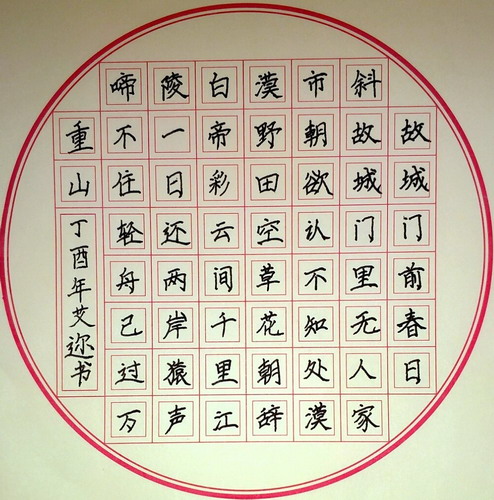 故城门前春日
斜故城门里无人家
市朝欲认不知处漠
漠野田空草花朝辞
白帝彩云间千里江
陵一日还两岸猿声
啼不住轻舟已过万
重山
丁酉年艾迩书